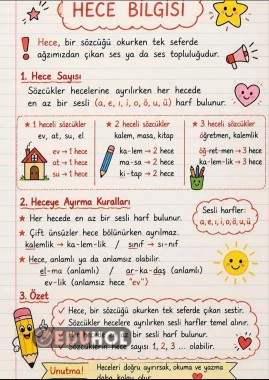 HECE BİLGİSİ
Hece, bir sözcüğü okurken tek seferde
ağzımızdan çıkan ses ya da ses topluluğudur.
1. Hece Sayısı
Sözcükler hecelerine ayrılırken her hecede
en az bir sesli (a, e, ı, i, o, ö, u, ü) harf bulunur.
★ 1 heceli sözcükler
ev, at, su, el
ev → 1 hece
at → 1 hece
su → 1 hece
★ 2 heceli sözcükler
kalem, masa, kitap
ka-lem → 2 hece
ma-sa → 2 hece
ki-tap → 2 hece
★ 3 heceli sözcükler
öğretmen, kalemlik
öğ-ret-men → 3 hece
ka-lem-lik → 3 hece
2. Heceye Ayırma Kuralları
★ Her hecede en az bir sesli harf bulunur.
★ Çift ünsüzler hece bölünürken ayrılmaz.
kalemlik → ka-lem-lik / sınıf → sı-nıf
★ Hece, anlamlı ya da anlamsız olabilir.
el-ma (anlamlı) / ar-ka-daş (anlamlı)
ev-lik (anlamsız hece "ev")
Sesli harfler:
a, e, ı, i, o, ö, u, ü
3. Özet
✓ Hece, bir sözcüğü okurken tek seferde çıkan sestir.
✓ Sözcükler hecelere ayrılırken sesli harfler temel alınır.
bir sesli harf bulunur.
Sözcüklerin hece sayısı 1, 2, 3 ... olabilir.
EDUHOL
Unutma!
Heceleri doğru ayırırsak, okuma ve yazma
daha kolay olur.